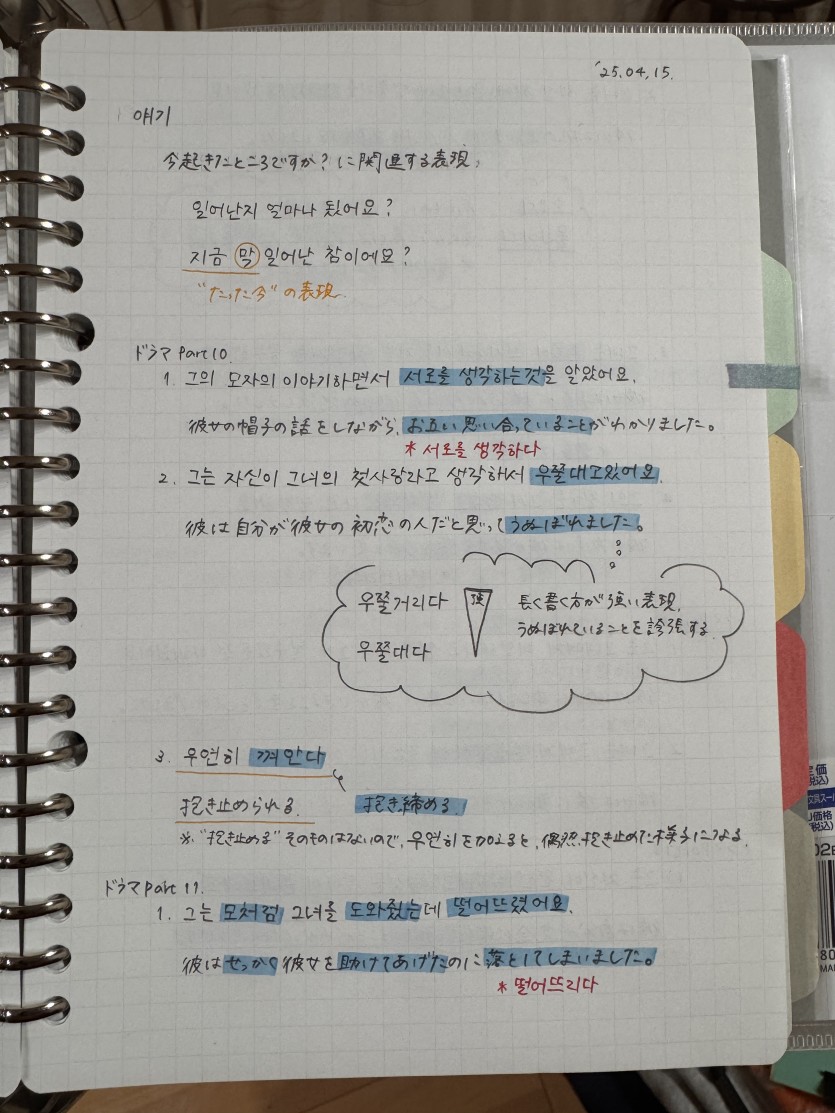 '25.04.15.
얘기
今起きたところですか？に関連する表現。
일어난지 얼마나 됬어요?
지금 막 일어난 참이에요?
"たった今"の表現
ドラマ Part 10.
1. 그의 모자의 이야기하면서 서로를 생각하는것을 알았어요.
彼女の帽子の話をしながら、お互い思い合っていることがわかりました。
* 서로를 생각하다
2. 그는 자신이 그녀의 첫사랑라고 생각하서 우쭐대고있어요.
彼は自分が彼女の初恋の人だと思ってうぬぼれました。
우쭐거리다
強
長く書く方が強い表現。
우쭐대다
うぬぼれていることを誇張する
3. 우연히 껴안다
抱き止められる。
抱き締める。
※"抱き止める"そのものはないので、우연히を加えると、偶然抱き止めた様子になる。
ドラマ Part 11.
1. 그는 모처럼 그녀를 도와줬는데 떨어뜨렸어요.
彼はせっかく彼女を助けてあげたのに落としてしまいました。
* 떨어뜨리다
定価
(税込)
文具スー
価格
(税込)
02
80
MA